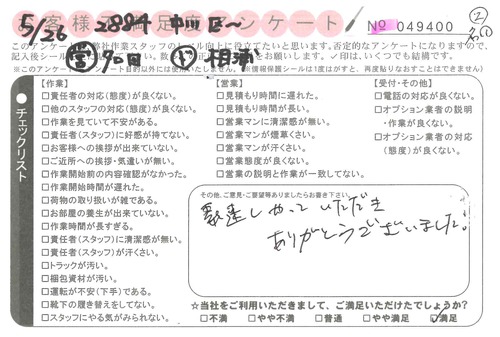 お客様満足度アンケート
5/26 2884 中川区〜
No 049400
②
このアンケートは弊社作業スタッフの
ール向上に役立てたいと思います。否定的なアンケートになりますので、
記入後シール
お願いします。✓印は、いくつでも結構です。
※このアンケート
目的以外には使用いたしません。※(個人情報保護シールは1度はがすと、再度貼りなおすことはできません)
チェックリスト
【作業】
□責任者の対応(態度)が良くない。
□他のスタッフの対応(態度)が良くない。
□作業を見ていて不安がある。
□責任者(スタッフ)に好感が持てない。
□お客様への挨拶が出来ていない。
□ご近所への挨拶・気遣いが無い。
□作業開始前の内容確認がなかった。
□作業開始時間が遅れた。
□荷物の取り扱いが雑である。
□お部屋の養生が出来ていない。
□作業時間が長すぎる。
□責任者(スタッフ)に清潔感が無い。
□責任者(スタッフ)が汗くさい。
□トラックが汚い。
□梱包資材が汚い。
□運転が不安(下手)である。
□靴下の履き替えをしてない。
□スタッフにやる気がみられない。
【営業】
□見積もり時間に遅れた。
□見積もり時間が長い。
□営業マンに清潔感が無い。
□営業マンが煙草くさい。
□営業マンが汗くさい。
□営業態度が良くない。
□営業の説明と作業が一致してない。
【受付・その他】
□電話の対応が良くない。
□オプション業者の説明
・作業が良くない。
□オプション業者の対応
(態度)が良くない。
その他、ご意見・ご要望等ありましたらお書き下さい。
しやっていただき
ありがとうございました!
☆当社をご利用いただきまして、ご満足いただけたでしょうか?
□不満 □やや不満 □普通 □やや満足 ☑満足